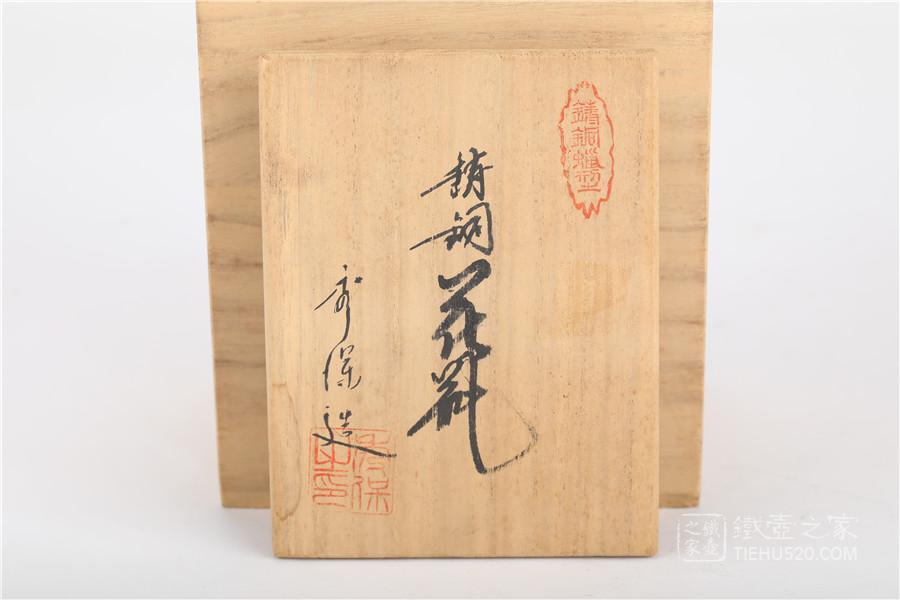 鋳銅蝋型
鋳銅花瓶
秀保造
秀保之印
鐵壺之家
鐵壺之家
TIEHU520.COM